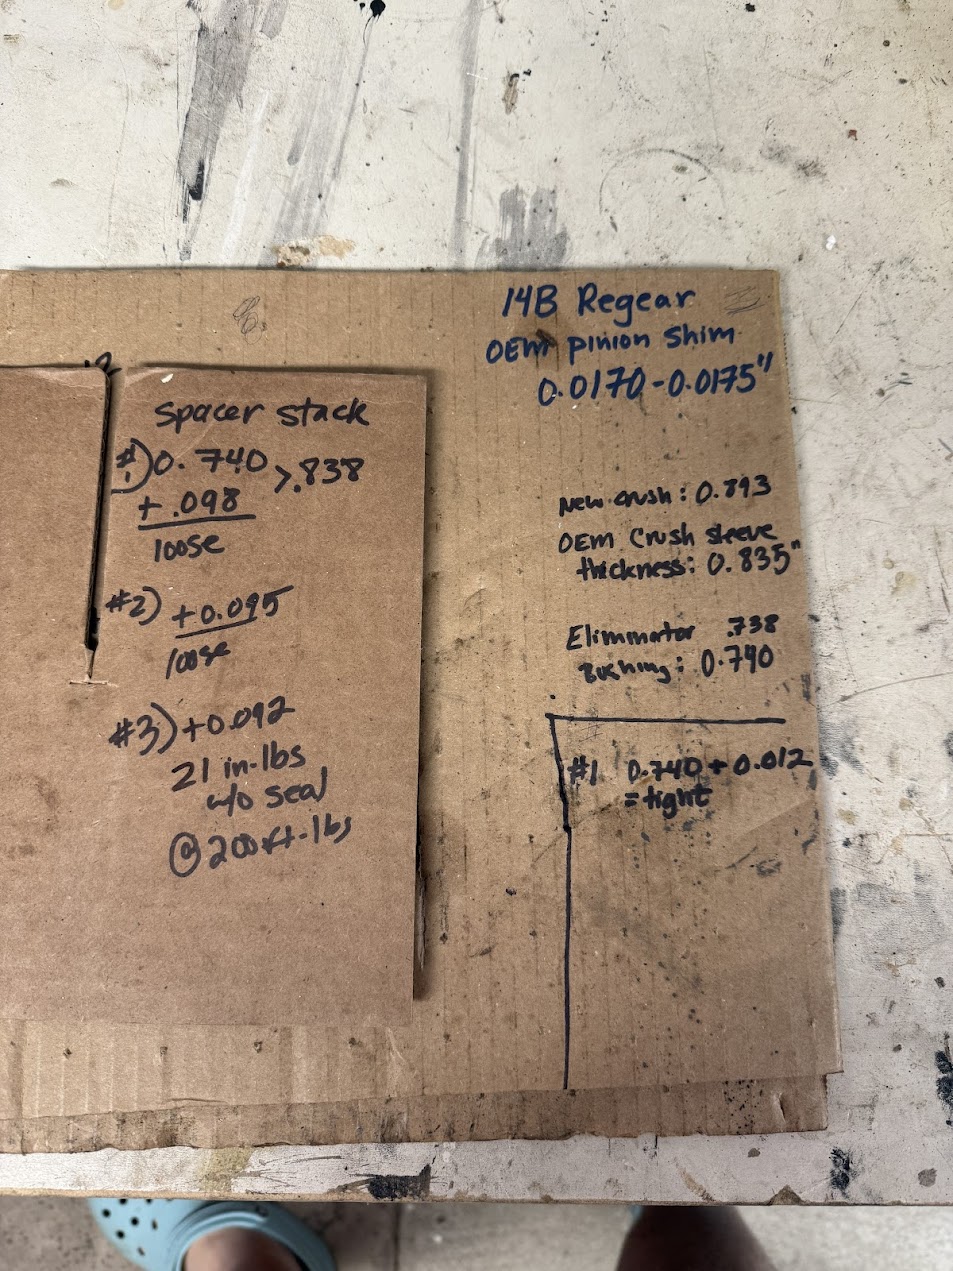 14B Regear
OEM pinion Shim
0.0170-0.0175"
New crush: 0.893
OEM Crush sleeve
thickness: 0.835"
Eliminator .738
Bushing: 0.740
#1 0.740 + 0.012
= tight
Spacer stack
#1) 0.740 >.838
+ .098
loose
#2) +0.095
loose
#3) +0.092
21 in-lbs
w/o seal
@ 200 ft-lbs